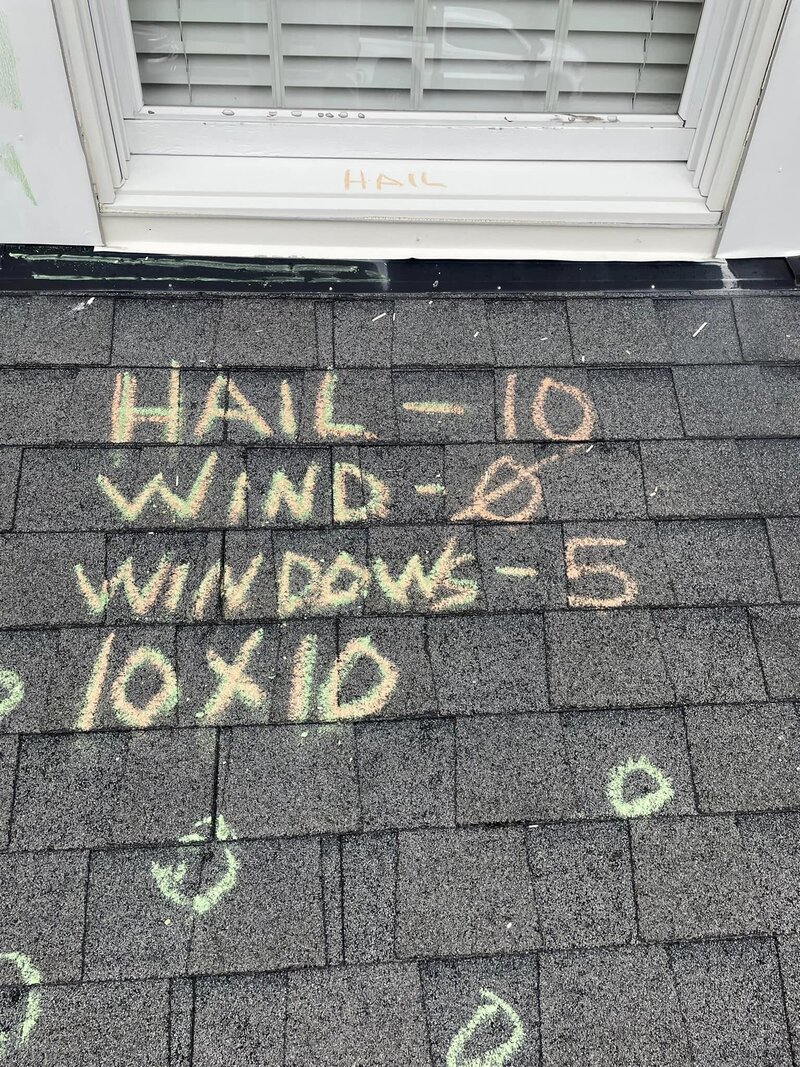 HAIL
HAIL - 10
WIND - Ø
WINDOWS - 5
10X10